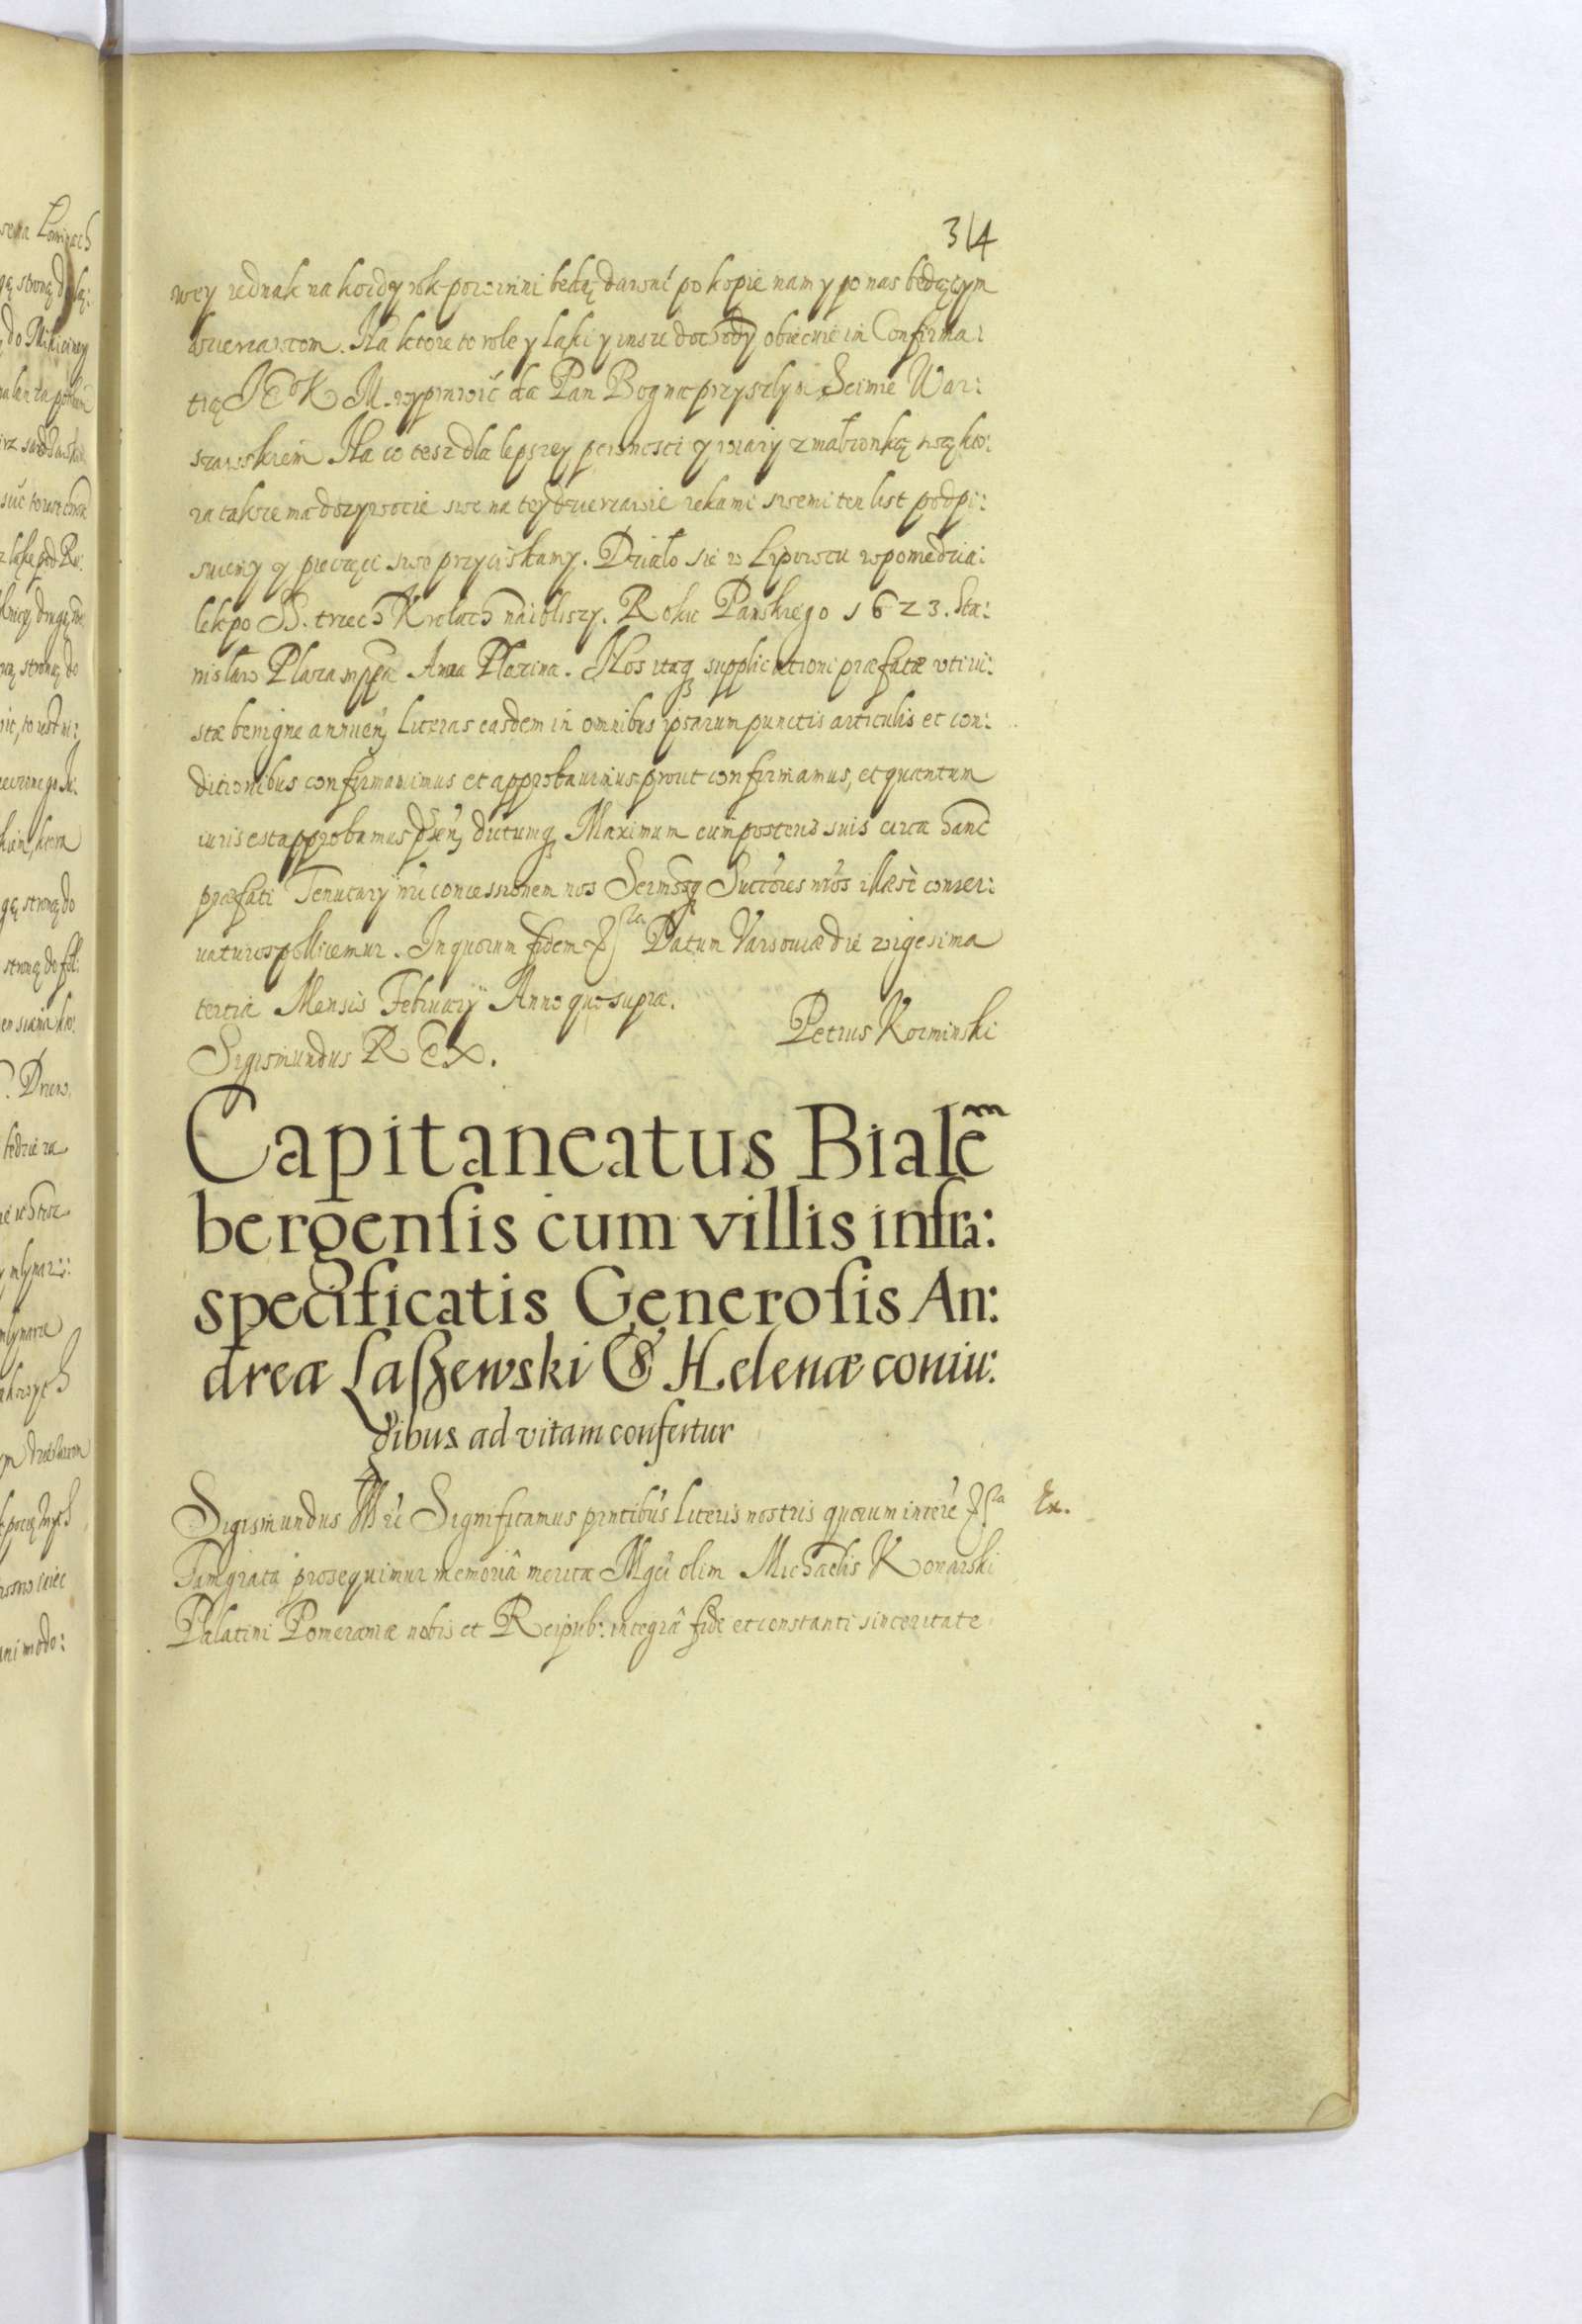 314
wey iednak na kozdy rok powinni będą dawać po kopie nam y po nas będącym
dzierzawcom. Na ktore to role y laki y insze dochody obiecuie in Confirma:
tią JEoK M. wyprawić da Pan Bog na przyszlym Seimie War:
szawskiem Na co tesz dla lepszey pewnosci y wiary z małzonką naszą kto:
ra takze ma dozywocie swe na tey dzierzawie rekami swemi ten list podpi:
suiemy y pieczęć swe przyciskamy. Działo sie w Lipowcu w poniedzia:
lek po SS. trzech Krolach naibliszy. Roku Panskiego 1623. Sta:
nisław Plaza mppa Anna Plazina. Nos itaq supplicationi præfatæ uti iu:
stæ benigne annuen, literas easdem in omnibus ipsarum punctis articulis et con:
ditionibus confirmauimus et approbauimus prout confirmamus, et quantum
iuris est approbamus pñten, dictumq Maximum cum posteris suis circa hanc
præfati Tenutarÿ nri concessionem nos Sermosq Succóres nros illæse conser:
uaturos pollicemur. In quorum fidem &c Datum Varsouiæ die vigesima
tertia Mensis Februarÿ Anno quo supra.
Sigismundus REX. Petrus Kozminski
Capitaneatus Biale
bergensis cum villis infra:
specificatis Generosis An:
dreæ Laszewski & Helenæ coniu:
gibus ad vitam confertur
Sigismundus III &c Significamus pntibus literis nostris quorum interest &c Ex.
Tam grata prosequimur memoriâ merita Mgci olim Michaelis Konarski
Palatini Pomeraniæ nobis et Reipub: integrâ fide et constanti sinceritate